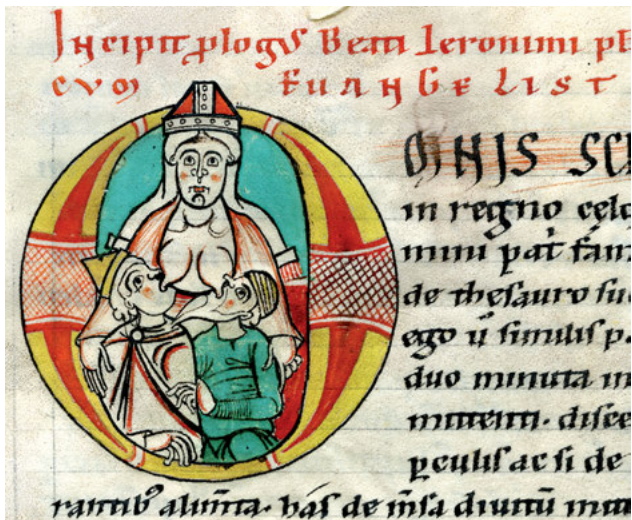 Incipit plogus Beati Ieronimi pb
EUANGELIST
OMNIS SC
in regno cęlo
mini pat fam
de thesauro suo
ego u similis p
duo minuta in
mittenti. disce
pculis ac si de
rantib alimta. has de msa divitu mitt